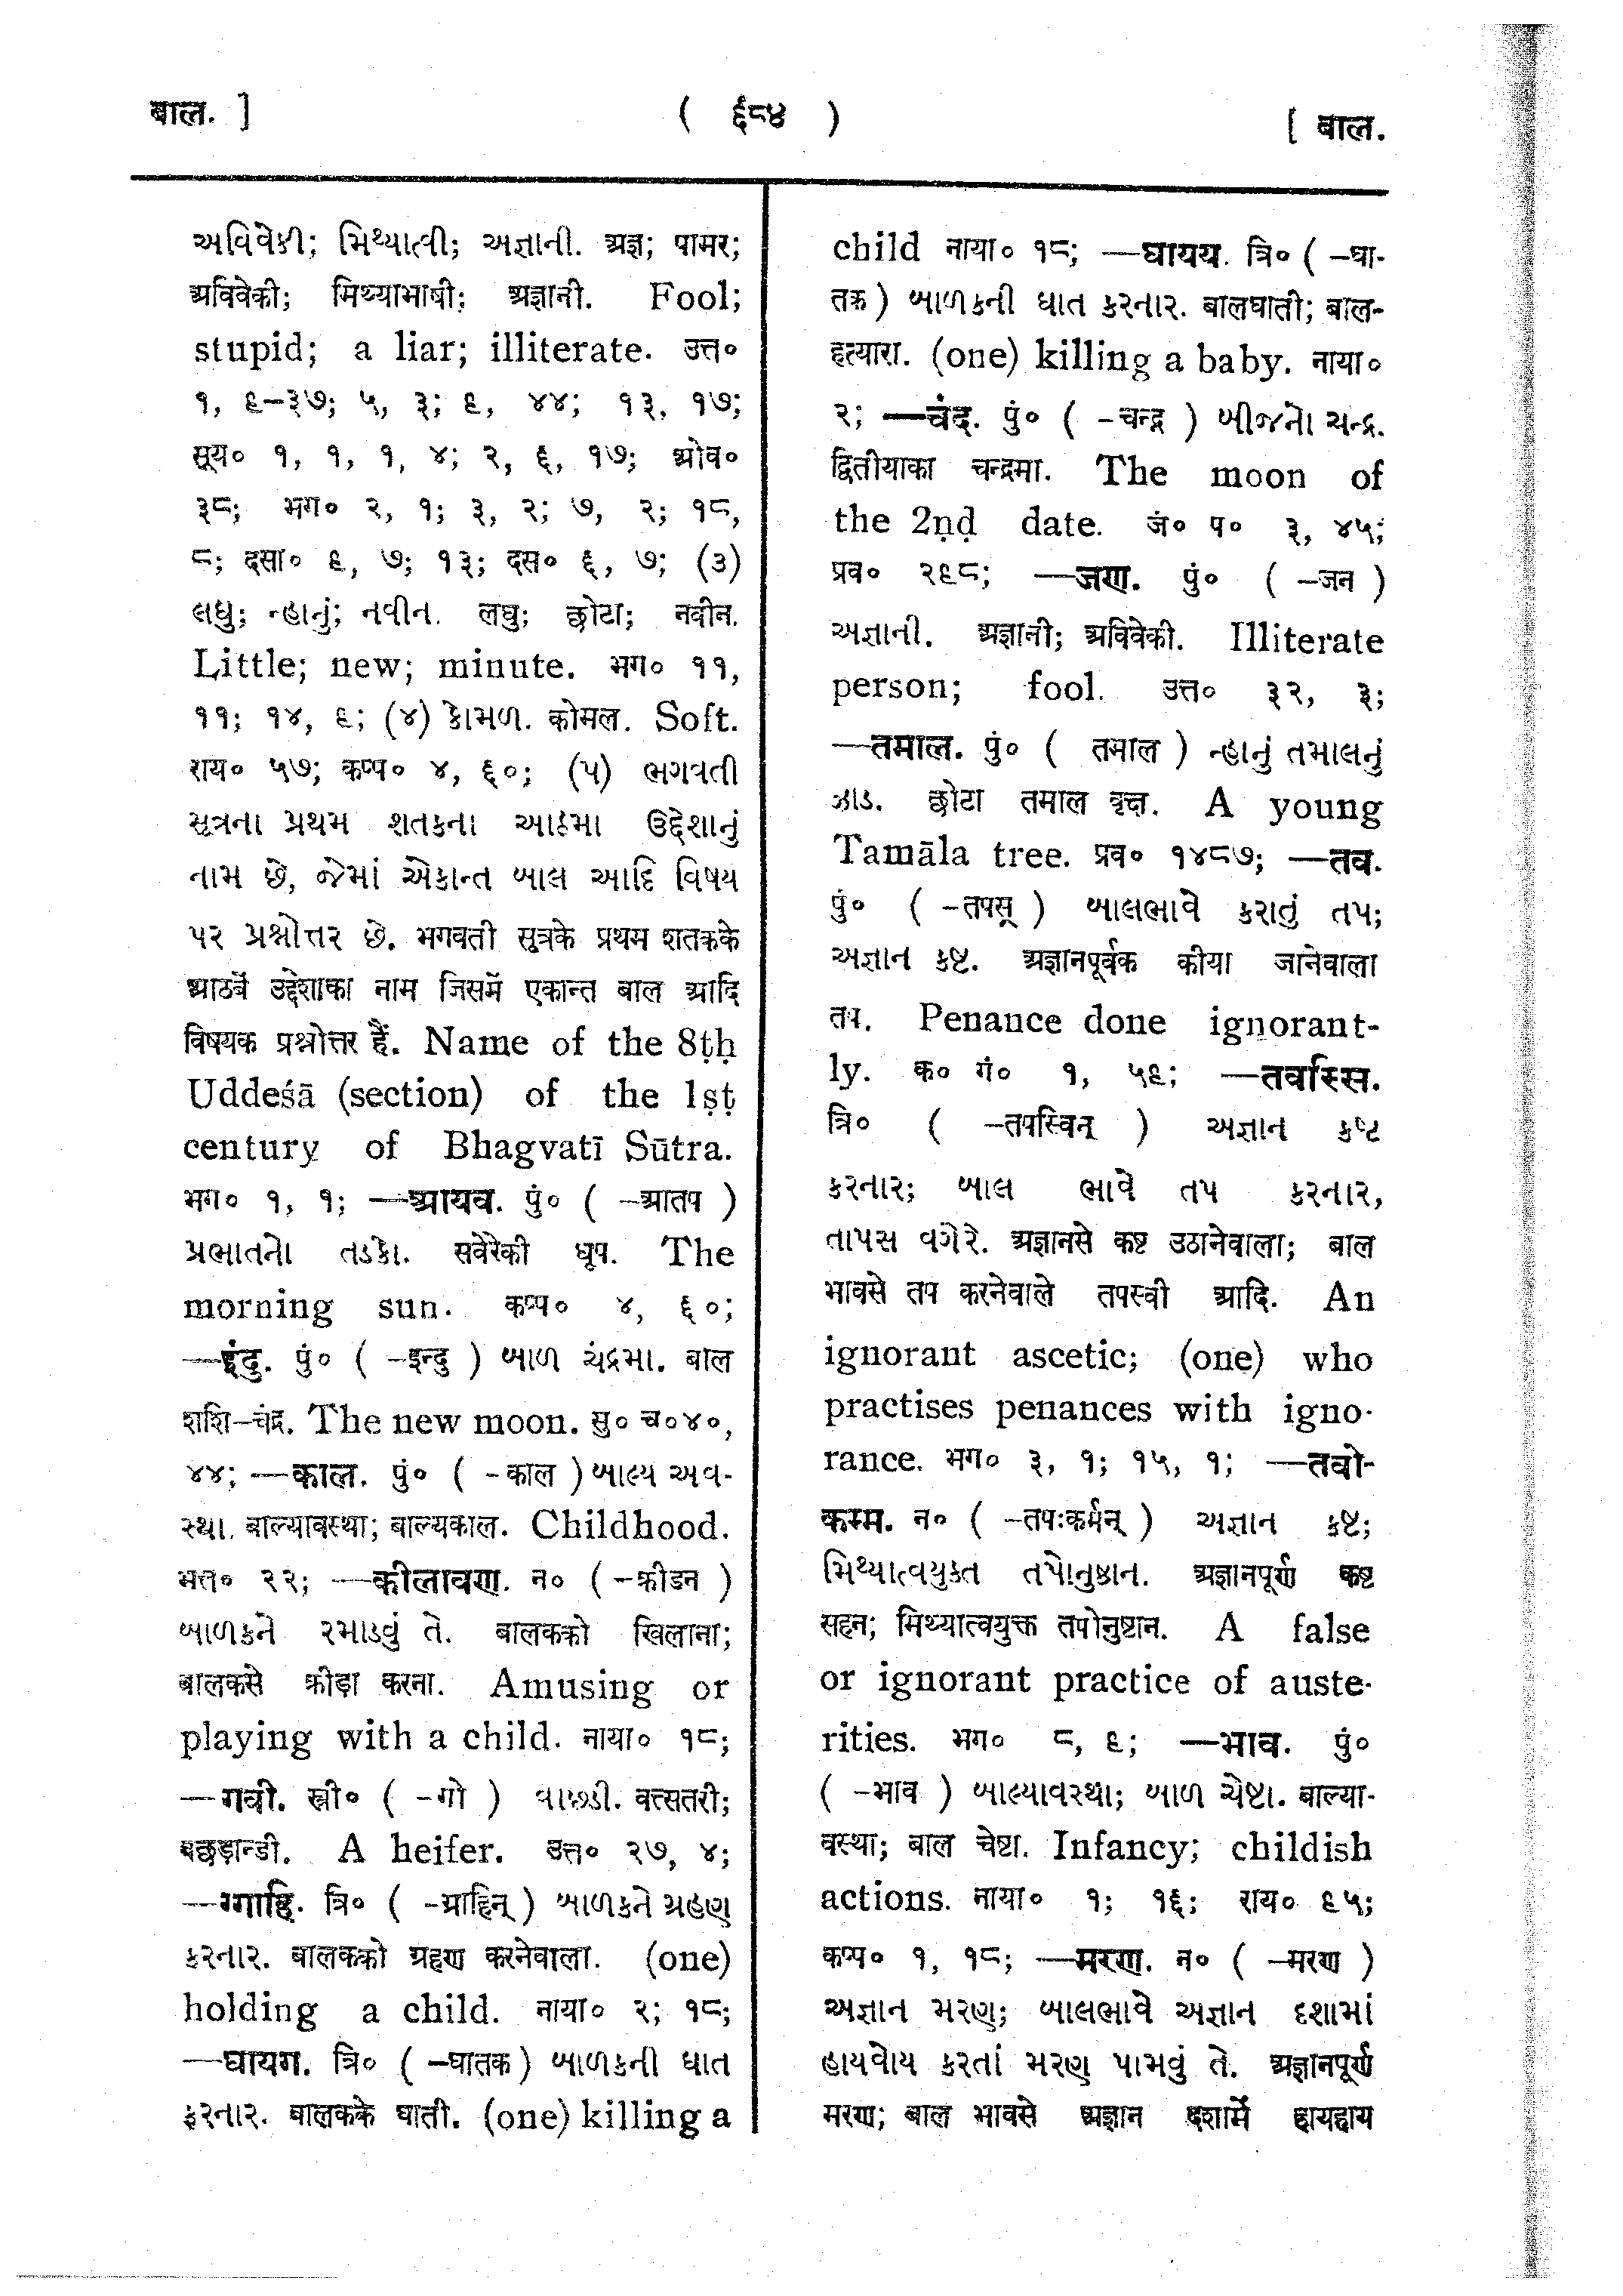 बाल. ]
( ६८४ )
[ बाल.
અવિવેકી; મિથ્યાત્વી; અજ્ઞાની. अज्ञ; पामर;
अविवेकी; मिथ्याभाषी; अज्ञानी. Fool;
stupid; a liar; illiterate. उत्त०
१, ९-३७; ५, ३; ९, ४४; १३, १७;
सूय० १, १, १, ४; २, ६, १७; ओव०
३८; भग० २, १; ३, २; ७, २; १८,
८; दसा० ९, ७; १३; दस० ६, ७; (३)
લઘુ; ન્હાનું; નવીન. लघु; छोटा; नवीन.
Little; new; minute. भग० ११,
११; १४, ९; (४) કોમળ. कोमल. Soft.
राय० ५७; कप्प० ४, ६०; (५) ભગવતી
સૂત્રના પ્રથમ શતકના આઠમા ઉદ્દેશાનું
નામ છે, જેમાં એકાન્ત બાલ આદિ વિષય
પર પ્રશ્નોત્તર છે. भगवती सूत्रके प्रथम शतकके
आठवें उद्देशाका नाम जिसमें एकान्त बाल आदि
विषयक प्रश्नोत्तर हैं. Name of the 8ṭḥ
Uddeśā (section) of the 1ṣṭ
century of Bhagvatī Sūtra.
भग० १, १; —आयव. पुं० ( -आतप )
પ્રભાતનો તડકો. सवेरेकी धूप. The
morning sun. कप्प० ४, ६०;
—इंदु. पुं० ( -इन्दु ) બાળ ચંદ્રમા. बाल
शशि-चंद्र. The new moon. सु० च० ४०,
४४; —काल. पुं० ( -काल ) બાલ્ય અવ-
સ્થા. बाल्यावस्था; बाल्यकाल. Childhood.
भत्त० २२; —कीलावण. न० ( -क्रीडन )
બાળકને રમાડવું તે. बालकको खिलाना;
बालकसे क्रीड़ा करना. Amusing or
playing with a child. नाया० १८;
—गवी. स्त्री० ( -गो ) વાછડી. वत्सतरी;
बछड़ान्डी. A heifer. उत्त० २७, ४;
—ग्गाहि. त्रि० ( -ग्राहिन् ) બાળકને ગ્રહણ
કરનાર. बालकको ग्रहण करनेवाला. (one)
holding a child. नाया० २; १८;
—घायग. त्रि० ( -घातक ) બાળકની ઘાત
કરનાર. बालकके घाती. (one) killing a
child नाया० १८; —घायय. त्रि० ( -घा-
तक ) બાળકની ઘાત કરનાર. बालघाती; बाल-
हत्यारा. (one) killing a baby. नाया०
२; —चंद. पुं० ( -चन्द्र ) બીજનો ચન્દ્ર.
द्वितीयाका चन्द्रमा. The moon of
the 2ṇḍ date. जं० प० ३, ४५;
प्रव० २९८; —जण. पुं० ( -जन )
અજ્ઞાની. अज्ञानी; अविवेकी. Illiterate
person; fool. उत्त० ३२, ३;
—तमाल. पुं० ( तमाल ) ન્હાનું તમાલનું
ઝાડ. छोटा तमाल वृक्ष. A young
Tamāla tree. प्रव० १४८७; —तव.
पुं० ( -तपस् ) બાલભાવે કરાતું તપ;
અજ્ઞાન કષ્ટ. अज्ञानपूर्वक कीया जानेवाला
तप. Penance done ignorant-
ly. क० गं० १, ५९; —तवस्सि.
त्रि० ( -तपस्विन् ) અજ્ઞાન કષ્ટ
કરનાર; બાલ ભાવે તપ કરનાર,
તાપસ વગેરે. अज्ञानसे कष्ट उठानेवाला; बाल
भावसे तप करनेवाले तपस्वी आदि. An
ignorant ascetic; (one) who
practises penances with igno-
rance. भग० ३, १; १५, १; —तवो-
कम्म. न० ( -तपःकर्मन् ) અજ્ઞાન કષ્ટ;
મિથ્યાત્વયુક્ત તપોનુષ્ઠાન. अज्ञानपूर्ण कष्ट
सहन; मिथ्यात्वयुक्त तपोनुष्टान. A false
or ignorant practice of auste-
rities. भग० ८, ९; —भाव. पुं०
( -भाव ) બાલ્યાવસ્થા; બાળ ચેષ્ટા. बाल्या-
वस्था; बाल चेष्टा. Infancy; childish
actions. नाया० १; १६; राय० ९५;
कप्प० १, १८; —मरण. न० ( -मरण )
અજ્ઞાન મરણ; બાલભાવે અજ્ઞાન દશામાં
હાયવોય કરતાં મરણ પામવું તે. अज्ञानपूर्ण
मरण; बाल भावसे अज्ञान दशामें हायहाय